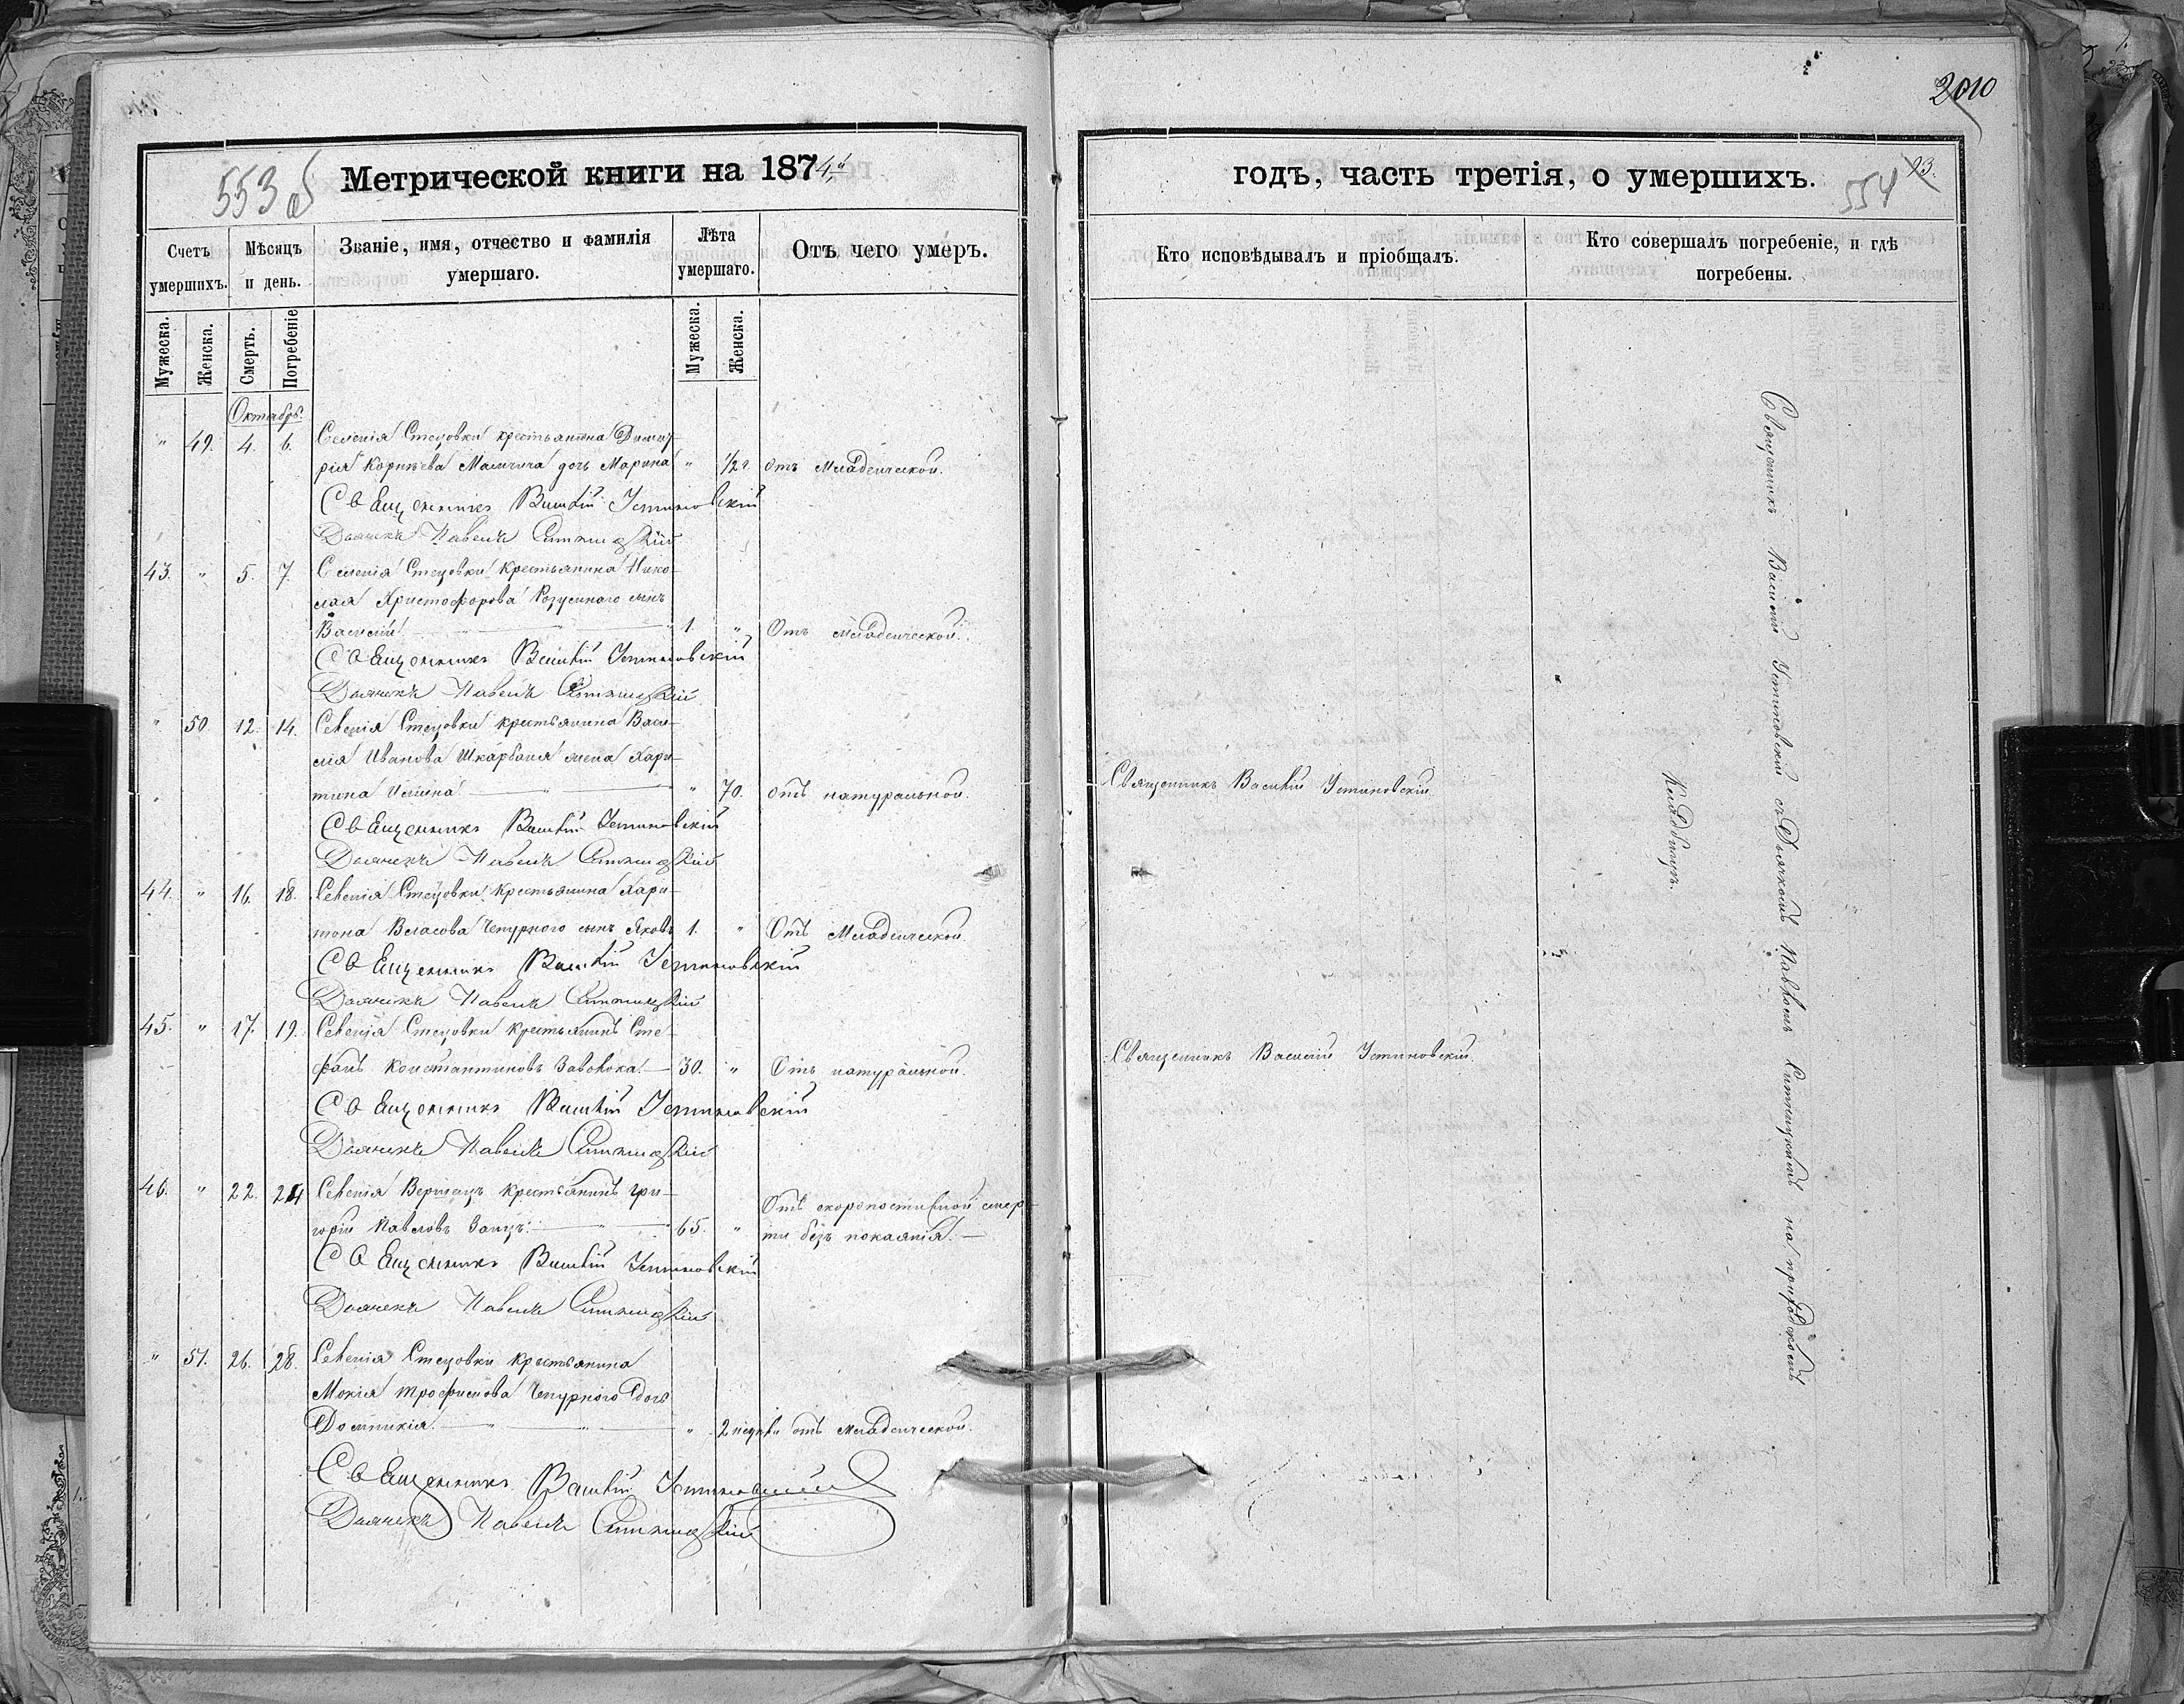 553 об
Метрической книги на 1874,,
Счетъ умершихъ.
Мѣсяцъ и день.
Званіе, имя, отчество и фамилія умершаго.
Лѣта умершаго.
Отъ чего умеръ.
Мужеска.
Женска.
Смерть.
Погребеніе
Мужеска.
Женска.
Октябрь.
" 49. 4. 6. Селенія Стецовки крестьянина Димит-
рія Корнѣева дочь Марина " 1/2 г. отъ младенческой.
Священникъ Василій Устиновскій
Дьячекъ Павелъ Ситницкій
43. " 5. 7. Селенія Стецовки крестьянина Нико-
лая Христофорова сынъ
Василій 1. " Отъ младенческой.
Священникъ Василій Устиновскій
Дьячекъ Павелъ Ситницкій
" 50. 12. 14. Селенія Стецовки крестьянина Васи-
лія Иванова Шкарбаня жена Хари-
тина " 70. отъ натуральной.
Священникъ Василій Устиновскій
Дьячекъ Павелъ Ситницкій
44. " 16. 18. Селенія Стецовки крестьянина Хари-
тона Власова Чепурного сынъ Яковъ 1. " Отъ Младенческой.
Священникъ Василій Устиновскій
Дьячекъ Павелъ Ситницкій
45. " 17. 19. Селенія Стецовки крестьянинъ Сте-
фанъ Константиновъ Заволока. 30. " Отъ натуральной.
Священникъ Василій Устиновскій
Дьячекъ Павелъ Ситницкій
46. " 22. 24 Селенія крестьянинъ Гри-
горій Павловъ Заяцъ. 65. " Отъ скоропостижной смер-
ти безъ покаянія.
Священникъ Василій Устиновскій
Дьячекъ Павелъ Ситницкій
" 51. 26. 28. Селенія Стецовки крестьянина
Мокія Трофимова Чепурного дочь
Домникія. " 2 недѣли отъ младенческой.
Священникъ Василій Устиновскій
Дьячекъ Павелъ Ситницкій
2010
годъ, часть третія, о умершихъ.
93.
554
Кто исповѣдывалъ и пріобщалъ.
Кто совершалъ погребеніе, и гдѣ погребены.
Священникъ Василій Устиновскій
Священникъ Василій Устиновскій.
Священникъ Василій Устиновскій съ Дьячкомъ Павломъ Ситницкимъ на приходскомъ
Кладбищѣ.